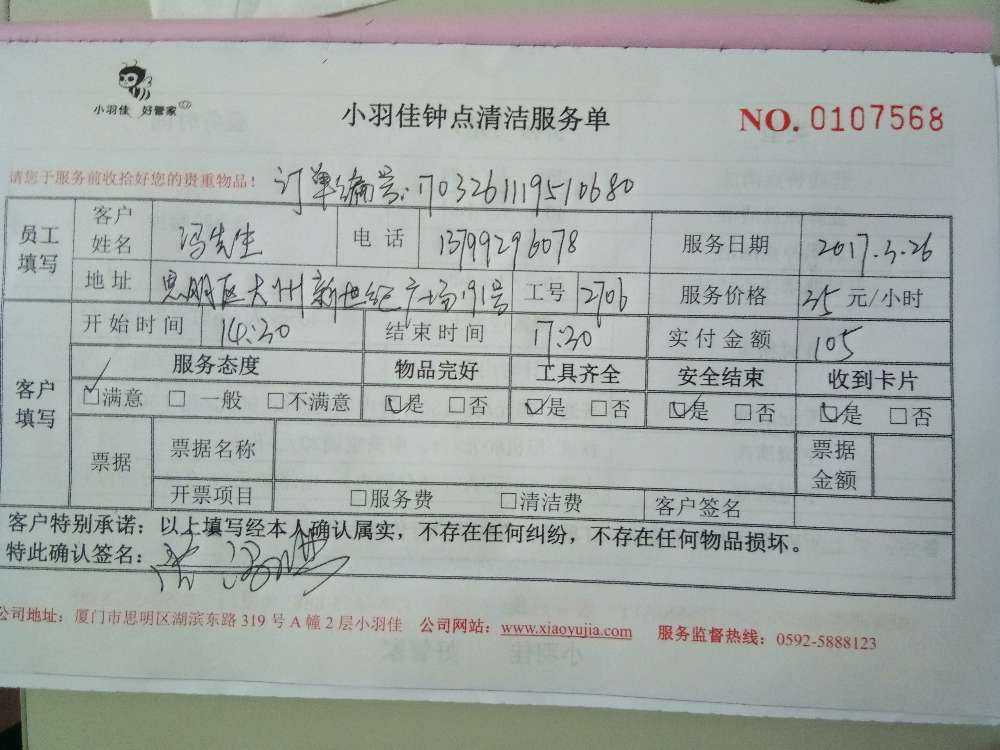 小羽佳 好管家
小羽佳钟点清洁服务单
NO. 0107568
请您于服务前收拾好您的贵重物品！
订单编号：170326111951 0680
员工填写 客户姓名 冯先生 电话 13799296078 服务日期 2017.3.26
地址 思明区大洲新世纪广场91号 工号 2706 服务价格 35 元/小时
客户填写 开始时间 14:30 结束时间 17:30 实付金额 105
服务态度 物品完好 工具齐全 安全结束 收到卡片
☑满意 □一般 □不满意 ☑是 □否 ☑是 □否 ☑是 □否 ☑是 □否
票据 票据名称 票据金额
开票项目 □服务费 □清洁费 客户签名
客户特别承诺：以上填写经本人确认属实，不存在任何纠纷，不存在任何物品损坏。
特此确认签名：
公司地址：厦门市思明区湖滨东路 319 号 A 幢 2 层小羽佳 公司网站：www.xiaoyujia.com 服务监督热线：0592-5888123